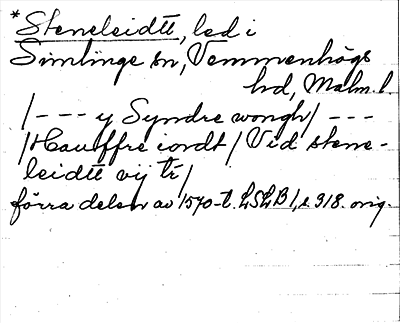 *Steneleidtt, led i
Simlinge sn, Vemmenhögs
hd, Malm. l.
/--- y Syndre wongh/ ---
/Hauffre iordt/ Vid stene-
leidtt vij tr/
förra delen av 1570-t. LSLB 1, s 318. orig.